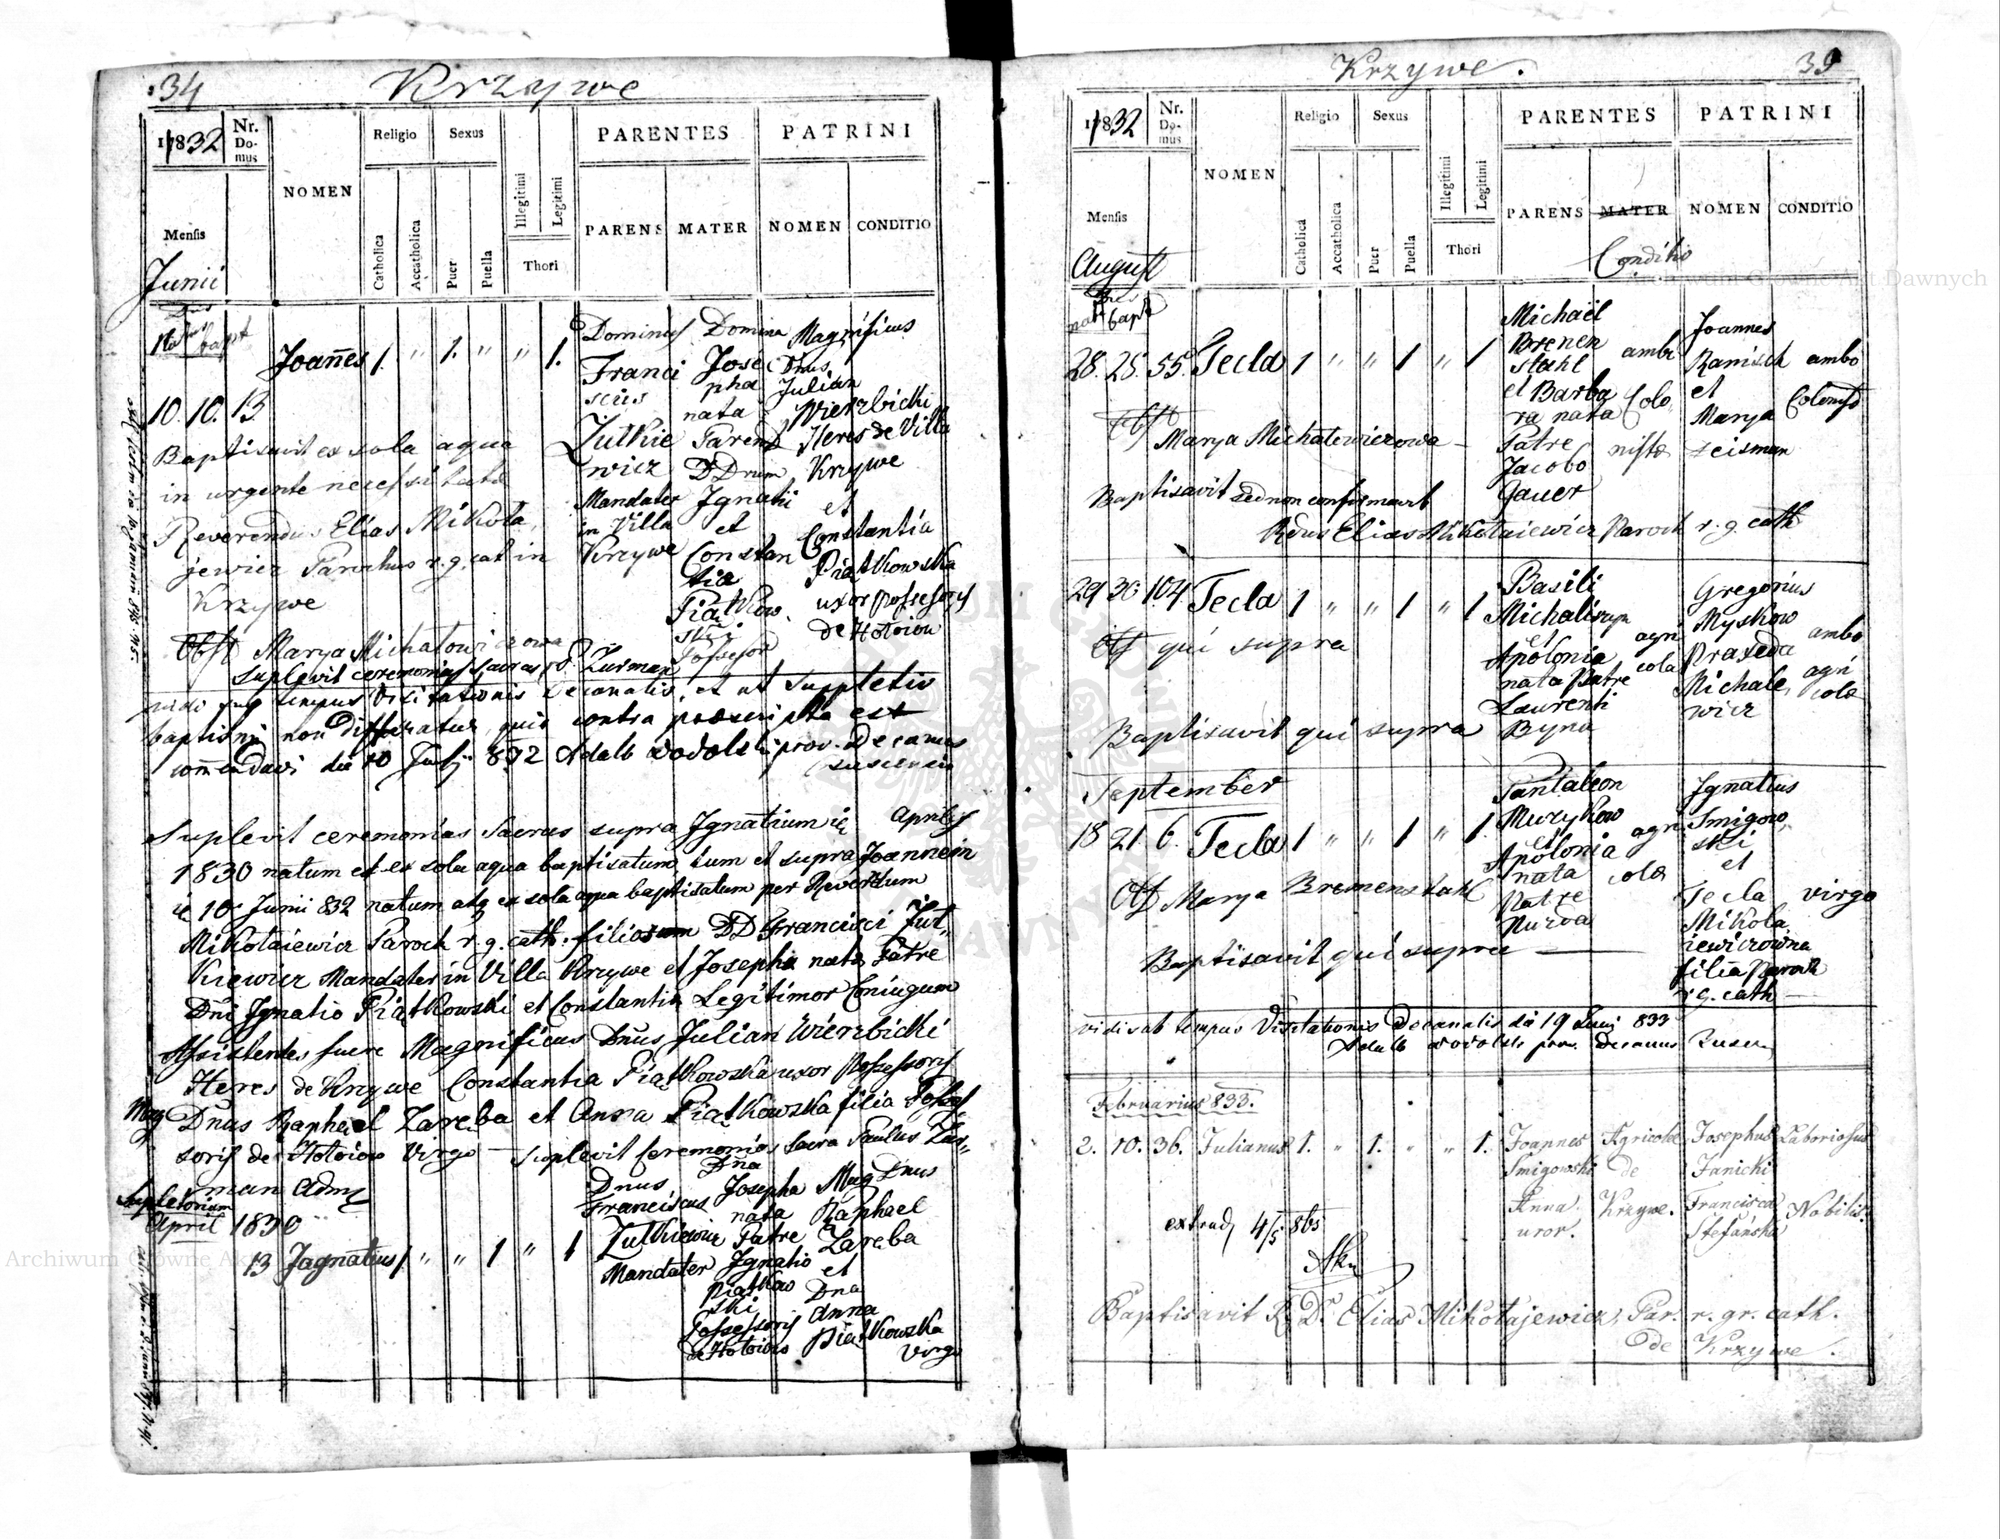 34
Krzywe
1832
Nr. Domus
NOMEN
Religio
Sexus
PARENTES
PATRINI
Mensis
Catholica
Accatholica
Puer
Puella
Illegitimi
Legitimi
Thori
PARENS
MATER
NOMEN
CONDITIO
Junii
Dies
nat bapt
Joannes 1 " 1. " " 1.
10. 10. 13
Dominus
Franci
scus
Zutkie
wicz
Mandater
in Villa
Krzywe
Domina
Jose
pha
nata
Parent
DDrum
Ignatii
et
Constan
tia
Piątkow
ski
Possessor
Magnificus
Dnus
Julian
Wierzbicki
Heres de Villa
Krzywe
et
Constantia
Piątkowska
uxor Possessoris
de Hotoiow
Baptisavit ex sola aqua
in urgente necessitate
Reverendus Elias Mikola
jewicz Parochus r.g. cat in
Krzywe
Obst Marya Michalowiczowa
Suplevit ceremonias sacras P. Zurman
vidi sub tempus Visitationis Decanalis, et ut Suppletio
baptismi non differatur, quia contra praescripta est
commendavi die 10 Julij 832 Adalb Wodolski prov. Decanus
Suplevit ceremonias Sacras supra Ignatium Aprilis
1830 natum et ex sola aqua baptisatum tum et supra Joannem
10 Junii 832 natum atq ex sola aqua baptisatum per Reverdum
Mikolaiewicz Paroch r.g. cath. filiorum DD Francisci Zut-
kiewicz Mandater in Villa Krzywe et Josepha nata Patre
Dni Ignatio Piątkowski et Constantia Legitimor Coniugum
Assistentes fuere Magnificus Dnus Julian Wierzbicki
Heres de Krzywe Constantia Piątkowska uxor Possessoris
Mag Dnus Raphael Zaręba et Anna Piątkowska filia Posses-
soris de Hotoiow Virgo – suplevit ceremonias Sacra Paulus Zur-
man Adm
Supletorium
April 1830
13 Jagnatius 1 " " 1 " 1
Dnus
Franciscus
Zutkiewicz
Mandater
Dna
Josepha
nata
Patre
Ignatio
Piątkow
ski
Possessoris
de Hotoiow
Mag Dnus
Raphael
Zaręba
et
Dna
Anna
Piatkowska
Virgo
Krzywe.
35
1832
Nr. Domus
NOMEN
Religio
Sexus
PARENTES
PATRINI
Mensis
Catholica
Accatholica
Puer
Puella
Illegitimi
Legitimi
Thori
PARENS
MATER
Conditio
NOMEN
CONDITIO
August
Dies
nat bapt
28. 25. 55. Tecla 1 " " 1 " 1
Michaël
Bremen
stahl
et Barba
ra nata
Patre
Jacobo
Gauer
ambo
Colo
nistæ
Joannes
Ranisch
et
Marya
Zeisman
ambo
Obst
Marya Michalewiczowa –
Baptisavit sed non confirmavit
Rdus Elias Mikolaiewicz Paroch r.g. cath
29 30 104 Tecla 1 " " 1 " 1
Basili
Michaliszyn
et
Apolonia
nata Patre
Laurenti
Byna
agri
colæ
Gregorius
Myskow
Praxeda
Michale
wicz
ambo
agri
colæ
Obst qui supra
Baptisavit qui supra
September
18 21. 6. Tecla 1 " " 1 " 1.
Pantaleon
Muzykow
et
Apolonia
nata
Patre
agri
colæ
Ignatius
Smigow
ski
et
Tecla
Mikola
iewiczowna
filia Paroch
r.g. cath –
virgo
Obst Marya Bremenstahl
Baptisavit qui supra
vidi sub tempus Visitationis Decanalis die 19 Junij 833
Adalb Wodolski prov. Decanus
Februarius 833.
2. 10. 36. Julianus 1. " 1. " " 1.
Joannes
Smigowski
Anna
uxor.
Agricolæ
de
Krzywe.
Josephus
Janicki
Francisca
Stefańska
Laboriosus
Nobilis.
extrad 4/5 865
Baptisavit R. D. Elias Mikołajewicz, Par. r. gr. cath.
de Krzywe.
Archiwum Główne Akt Dawnych